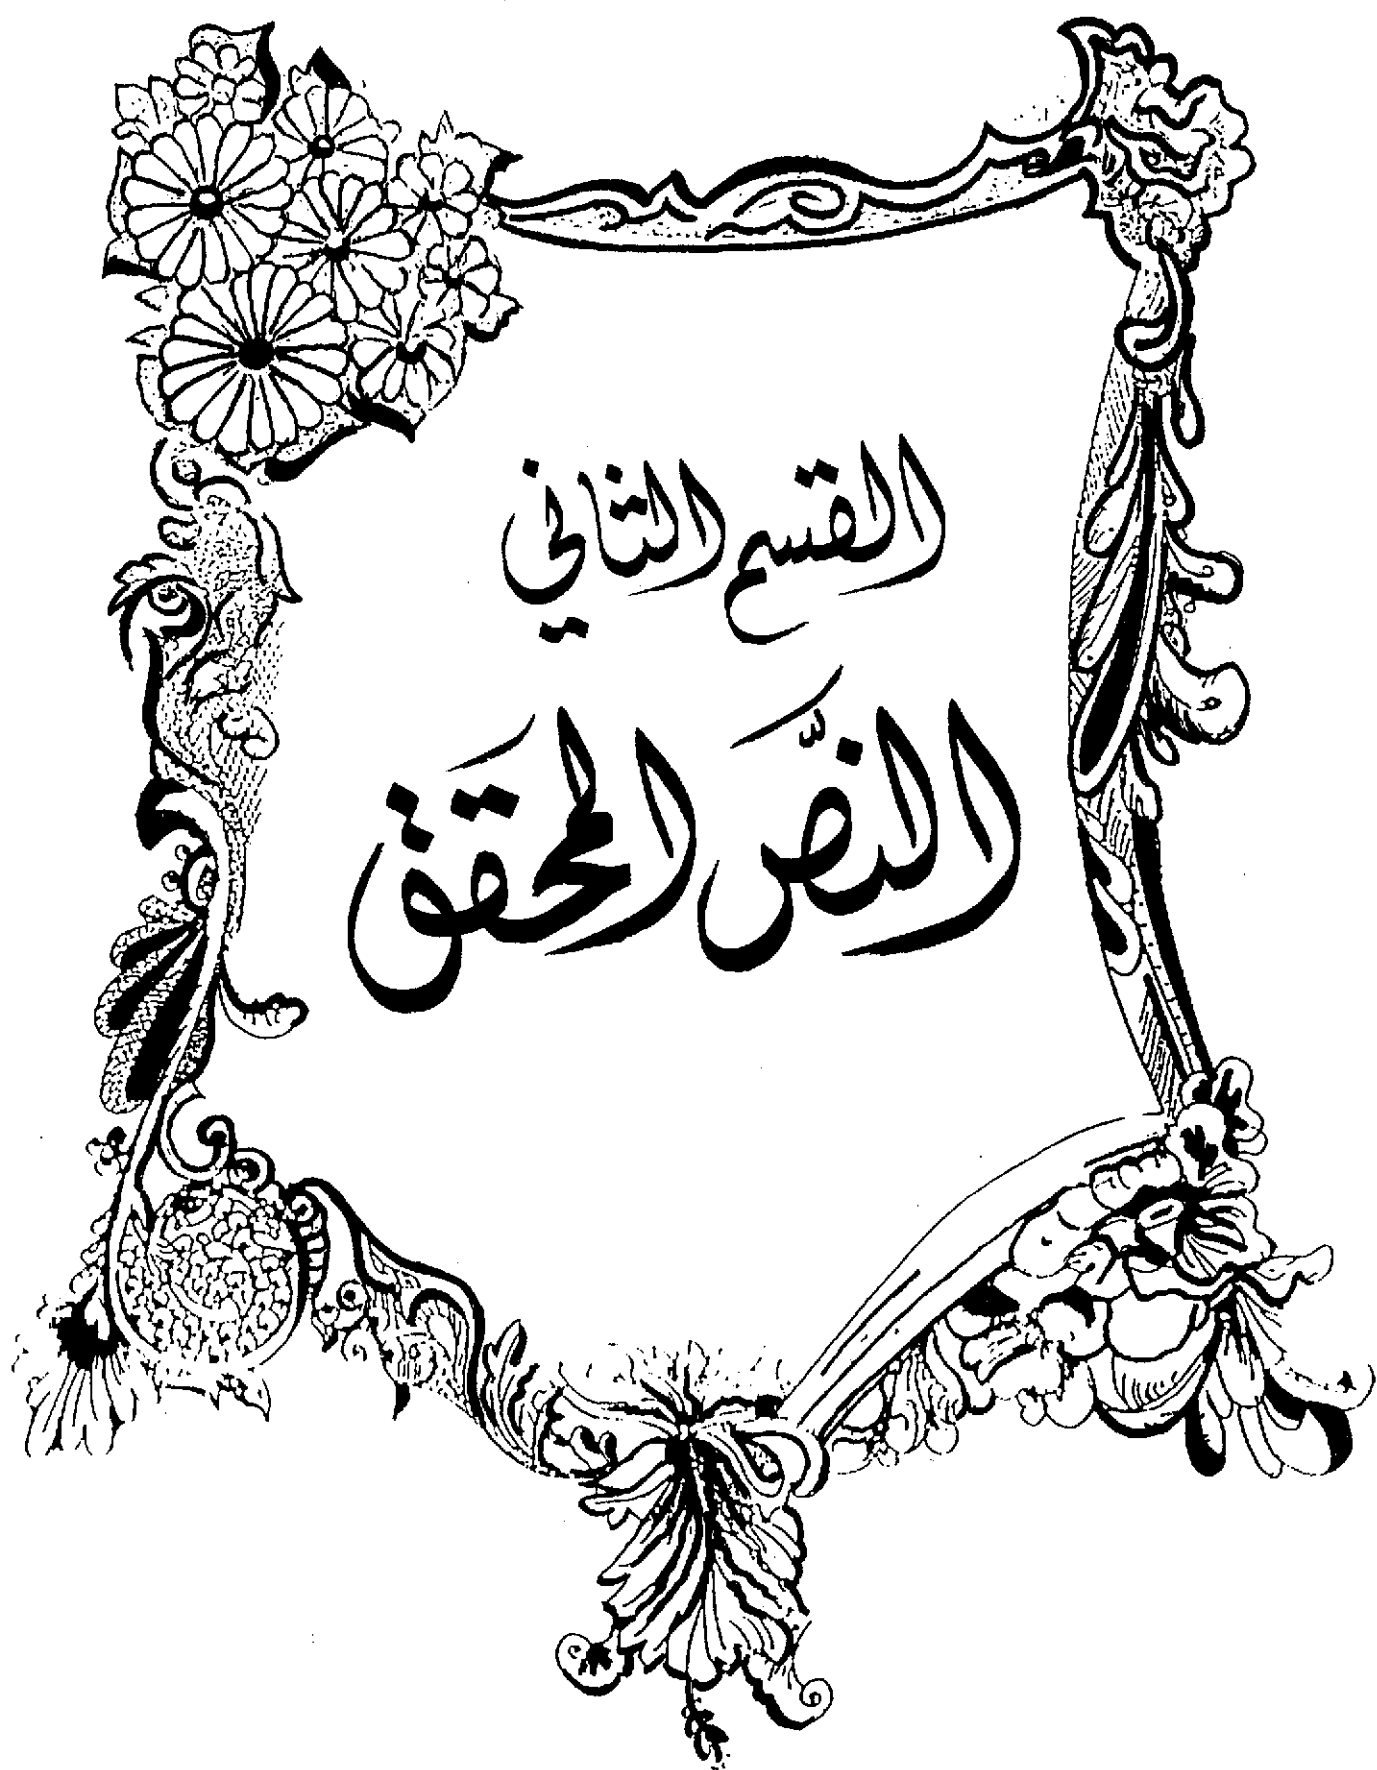 القسم الثاني
النَّص المحَقَق